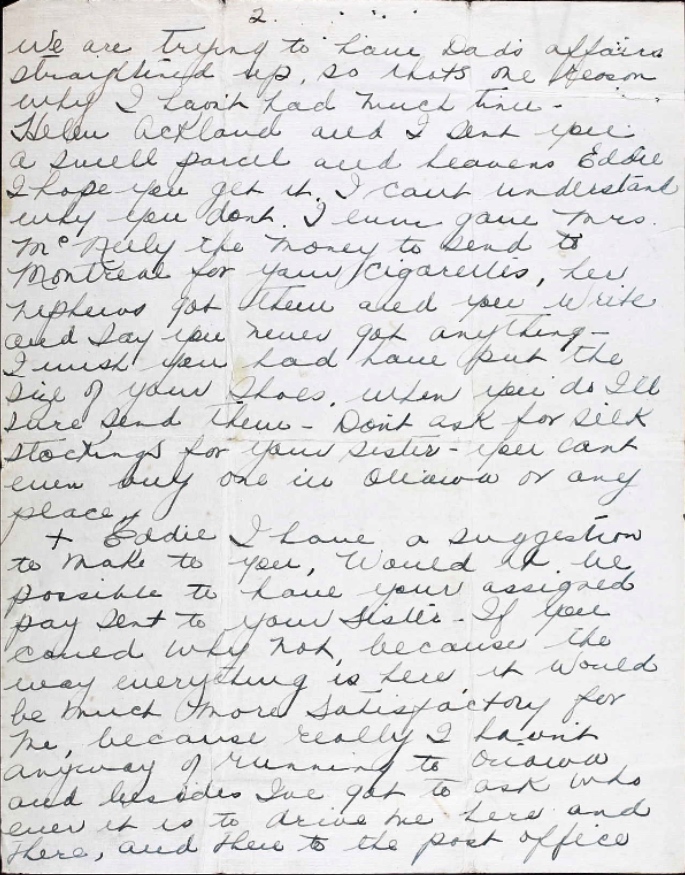 2.
We are trying to have Dads affairs
straightined up, so thats one reason
why I havnt had much time -
Helen Ackland and I sent you
a swell parcel and heavens Eddie
I hope you get it. I cant understand
why you dont. I even gave Mrs.
McNeely the money to send to
Montreal for your cigarettes, her
nephews got them and you write
and say you never got anything -
I wish you had have put the
size of your shoes, when you do I'll
sure send them - Dont ask for silk
stockings for your sister - you cant
even buy one in Ottawa or any
place.
+ Eddie I have a suggestion
to make to you, Would it be
possible to have your assigned
pay sent to your sister - If you
could why not, because the
way everything is here it would
be much more satisfactory for
me, because really I havnt
anyway of running to Ottawa
and besides Ive got to ask who
ever it is to drive me here and
there, and then to the post office